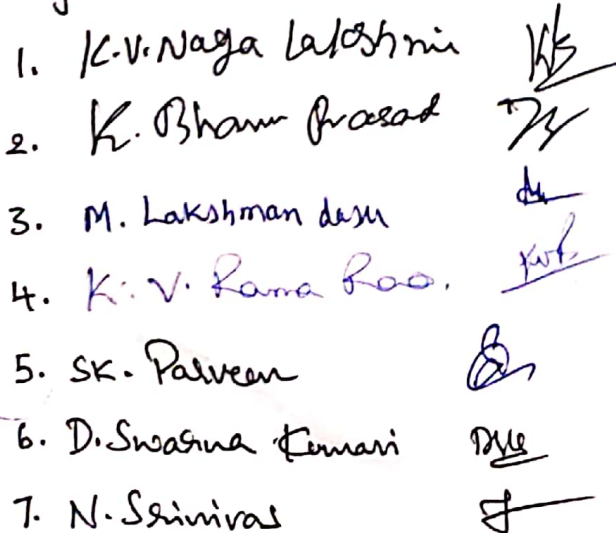 1. K.V. Naga Lakshmi
2. K. Bhanu Prasad
3. M. Lakshman dasu
4. K. V. Rama Rao.
5. SK. Parveen
6. D. Swarna Kumari
7. N. Srinivas